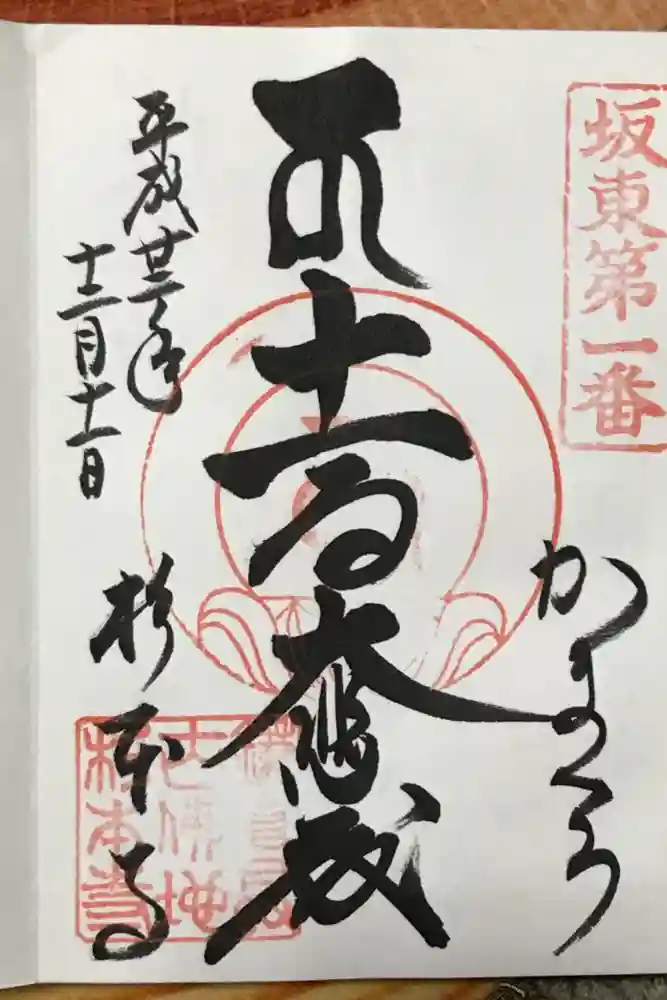 坂東第一番
かまくら
十一面大悲殿
平成廿三年
十二月十一日
杉本寺
杉本寺